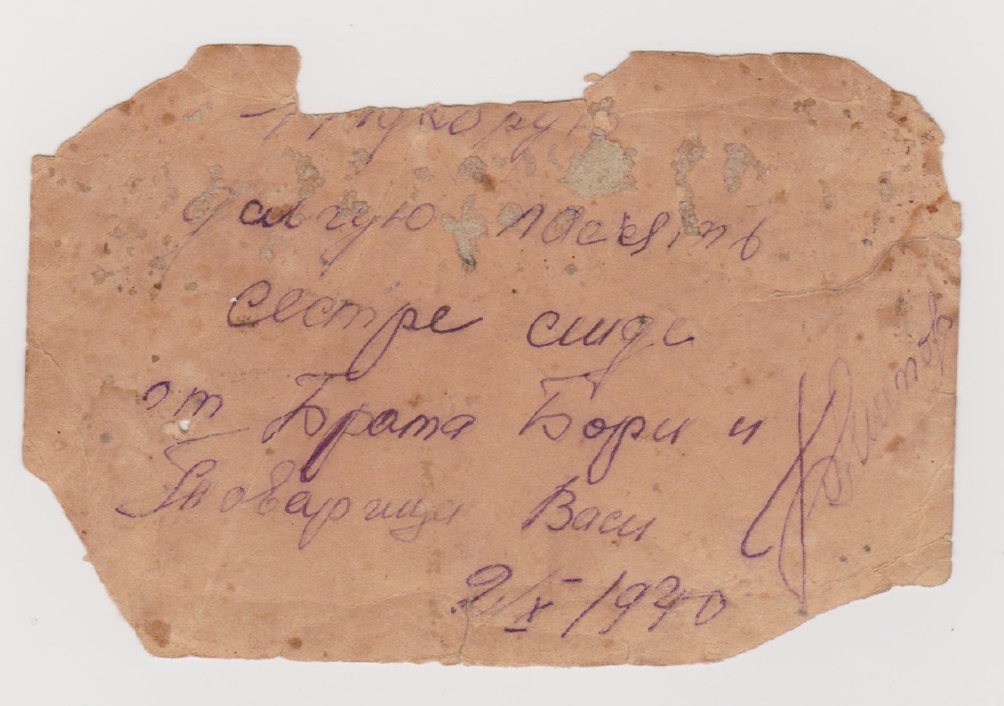 долгую память
сестре Лиде
от Брата Бори и
Товарища Васи
2/X-1940